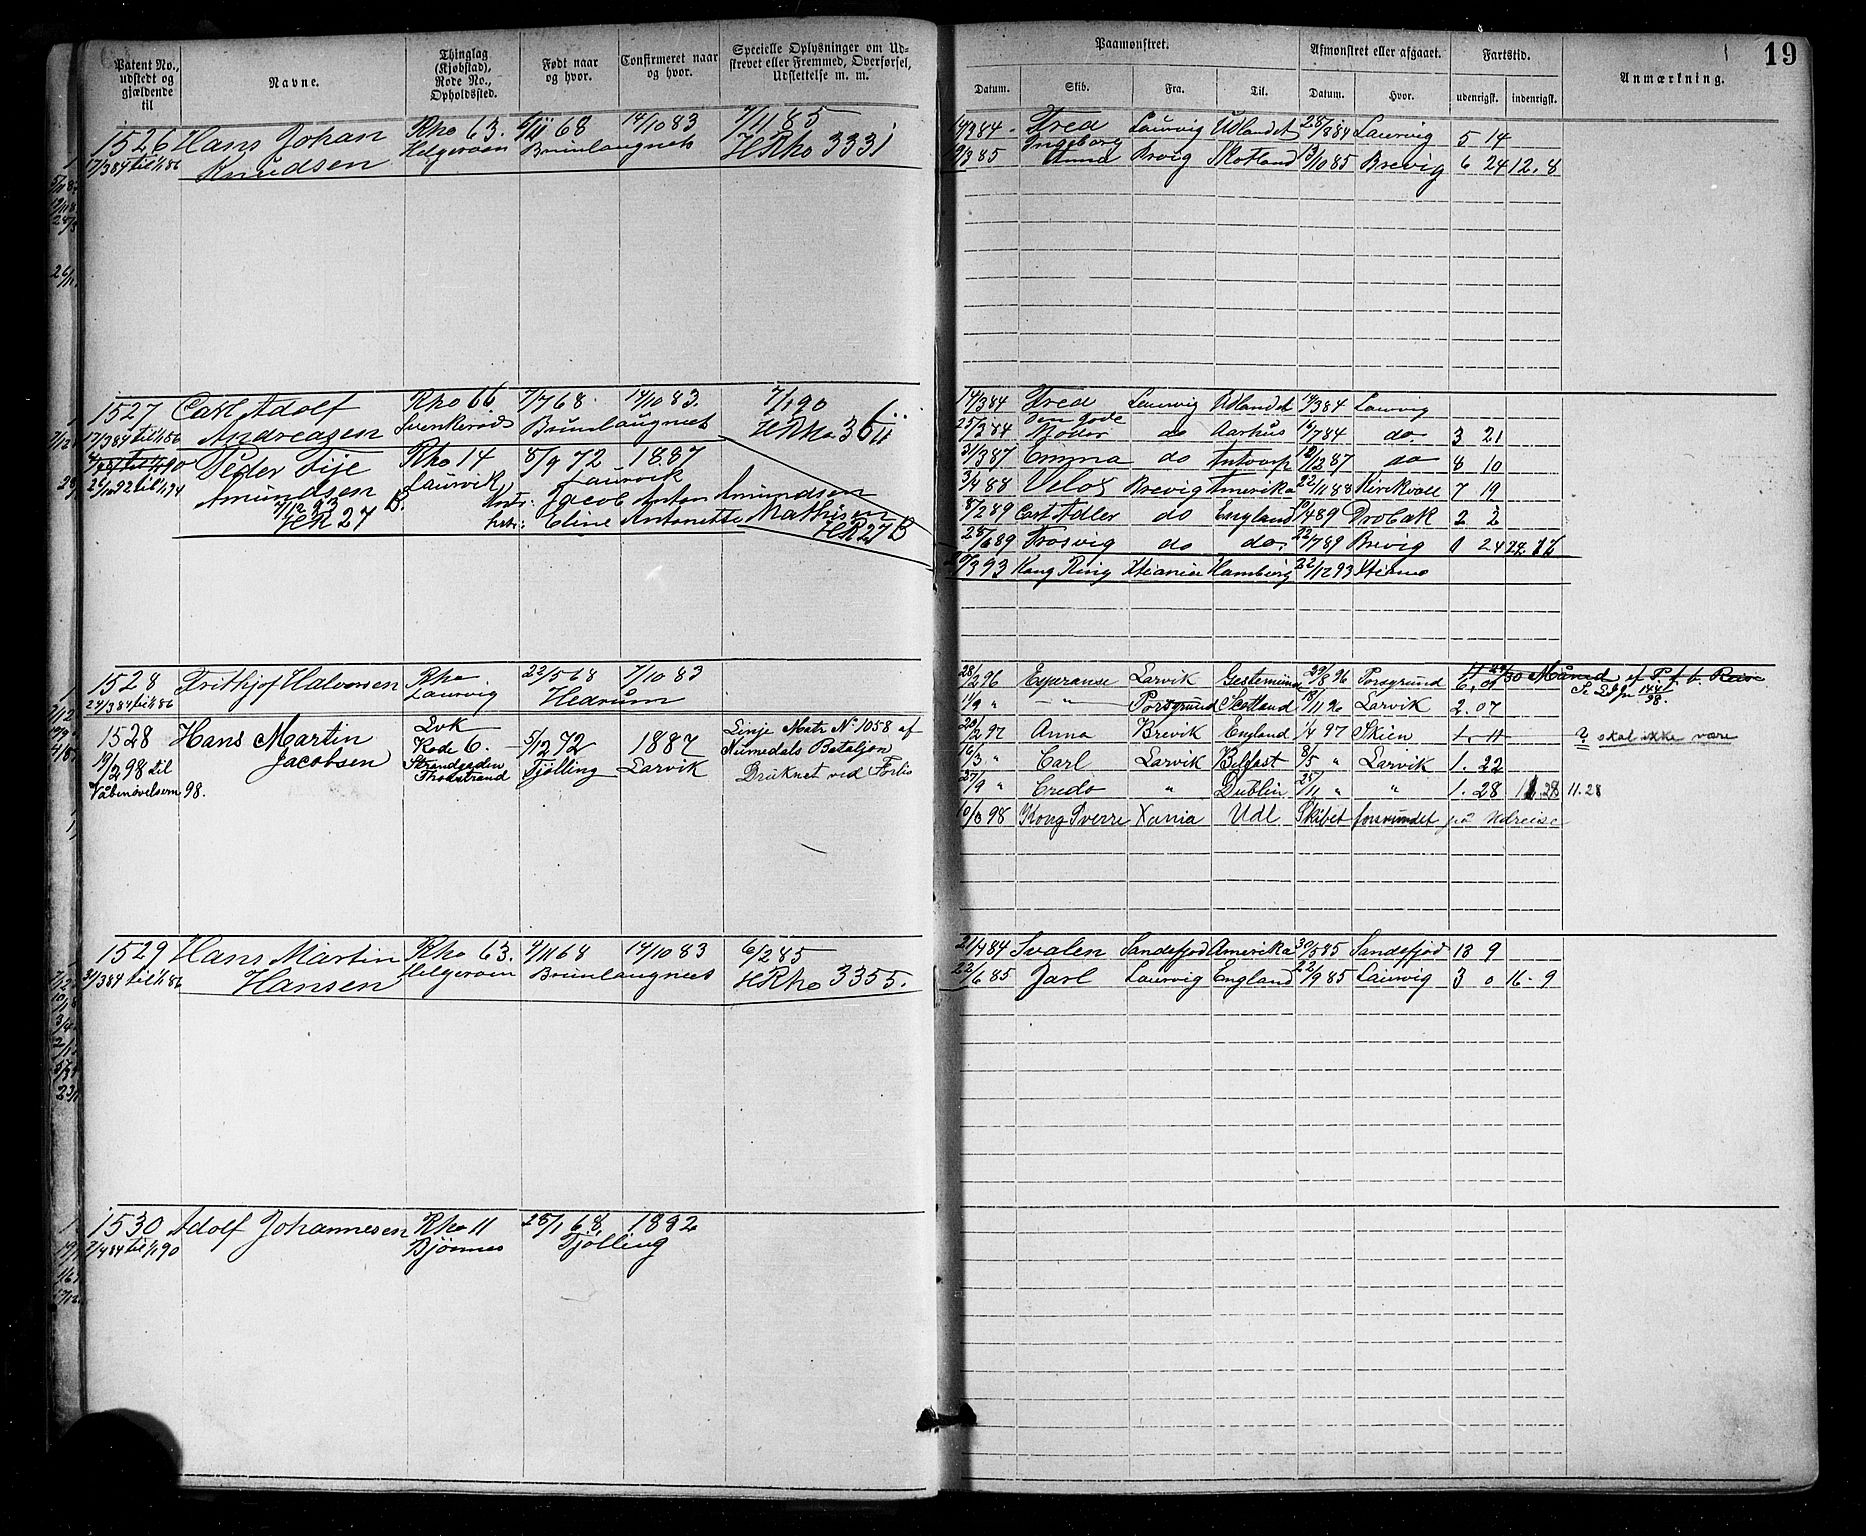 19
Patent No., udstedt og gjældende til
Navne.
Thinglag (Kjøbstad), Rode No., Opholdssted.
Født naar og hvor.
Confirmeret naar og hvor.
Specielle Oplysninger om Udskrevet eller Fremmed, Overførsel, Udslettelse m. m.
Paamønstret.
Afmønstret eller afgaaet.
Fartstid.
Anmærkning.
Datum. Skib. Fra. Til. Datum. Hvor. udenrigst. indenrigst.
1526 Hans Johan Rho 63. 14/10 83 7/11 85
17/3 84 til 1/1 86 Knudsen Helgeroen Brunlaugnæs HRho 3331
Fred Laurvig Udlandet 28/8 84 Laurvig 5 14
Ingeborg
19/3 85 Anna Brvig Skotland 13/10 85 Brevig 6 24 12. 8
1527 Carl Adolf Rho 66 7/7 68. 14/10 83. 7/1 90
17/3 84 til 1/1 86 Andreasen Brunlaugnæs HRho 3611
4/2 87 til 1/1 90 Peder Sije Rho 14 8/9 72 1887
26/10 92 til 1/1 94 Amundsen Laurvik Laurvik
7/12 93 B. Jacob Anton Amundsen
HR 27 Eline Antonette Mathisen
HR 27 B
14/3 84 Fred Laurvig Udlandet 19/3 84 Laurvig
25/3 84 Den gode Moder do Aarhus 16/7 84 do 3 21
31/3 87 Emma do Antverp 10/12 87 do 8 10
3/4 88 Velox Brevig Amerika 22/11 88 Kirkvall 7 19
8/2 89 Carl Adler do England 10/4 89 Drobak 2 2
28/6 89 Frosvig do do. 22/7 89 Brevig 0 24 24. 26
3 93 Kong Ring Xtiania Hamburg 22/12 93 Xtiania
1528 Frithjof Halvorsen Rho 22/5 68 7/10 83
24/3 84 til 1/1 86 Laurvig Hedrum
28/2 96 Esperanse Larvik Gestemünde 29/8 96 Porsgrund 6. 01
14/9 " — " — Porsgrund Scotland 19/11 96 Larvik 2. 07
1528 Hans Martin Lvk 5/12 72 1887 Linje Matr No 1058 af
19/2 98 til Jacobsen Rode 6. Tjølling Larvik Numedals Bataljon
Vaabenøvelsen 98. Strandgaden Druknet ved Forlis
22/2 97 Anna Brevik England 1/4 97 Skien 1. 11 ? skal ikke være
16/3 " Carl Larvik Belfast 8/5 " Larvik 1. 22
27/9 " Credo " Dublin 25/11 " " 1. 28 11. 28 11.28
10/3 98 Kong Sverre Xania Udl Skibet forsvundet paa Udreise
1529 Hans Martin Rho 63. 9/11 68 14/10 83 6/2 85
31/3 84 til 1/1 86 Hansen Helgeroen Brunlaugnæs HRho 3355.
21/4 84 Svalen Sandefjod Amerika 30/5 85 Sandefjod 13 9
22/6 85 Jarl Laurvig England 22/9 85 Laurvig 3 0 16 - 9
1530 Adolf Johannesen Rho 11 28/1 68. 1882
2/4 84 til 1/1 90 Bjønnes Tjølling